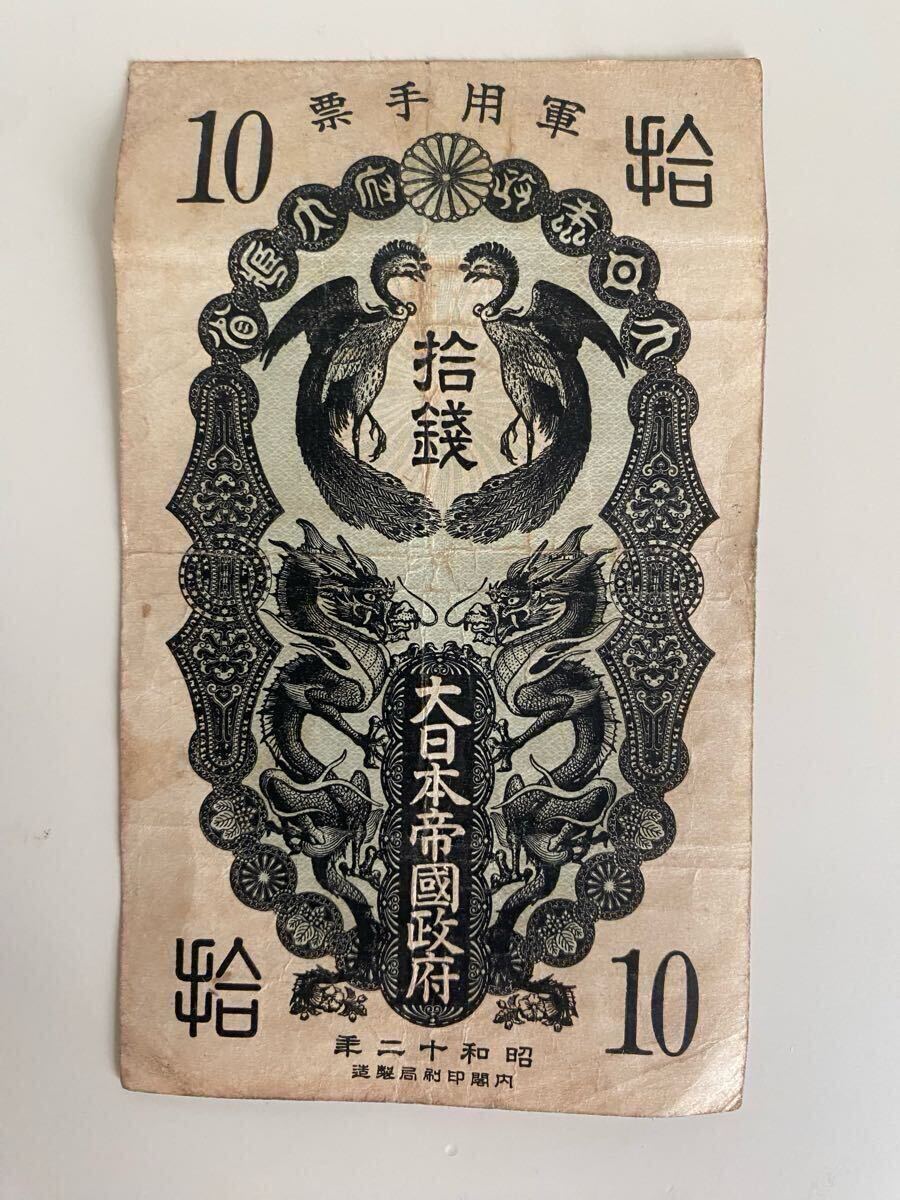 10
軍用手票
拾
拾錢
大日本帝國政府
拾
10
昭和十二年
内閣印刷局製造